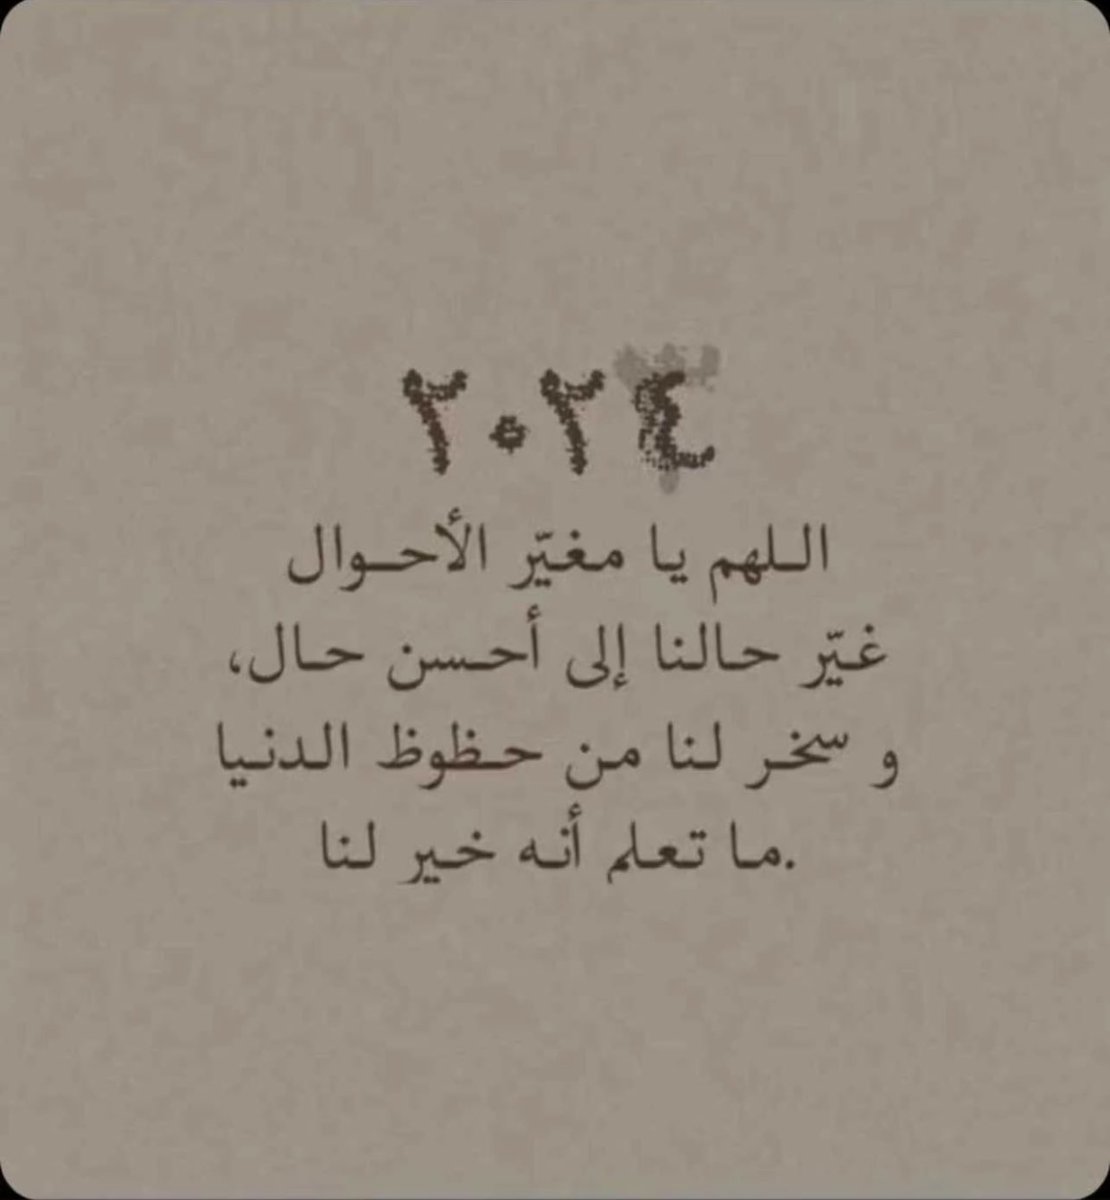 ٢٠٢٤
اللهم يا مغيّر الأحوال
غيّر حالنا إلى أحسن حال،
و سخر لنا من حظوظ الدنيا
.ما تعلم أنه خير لنا